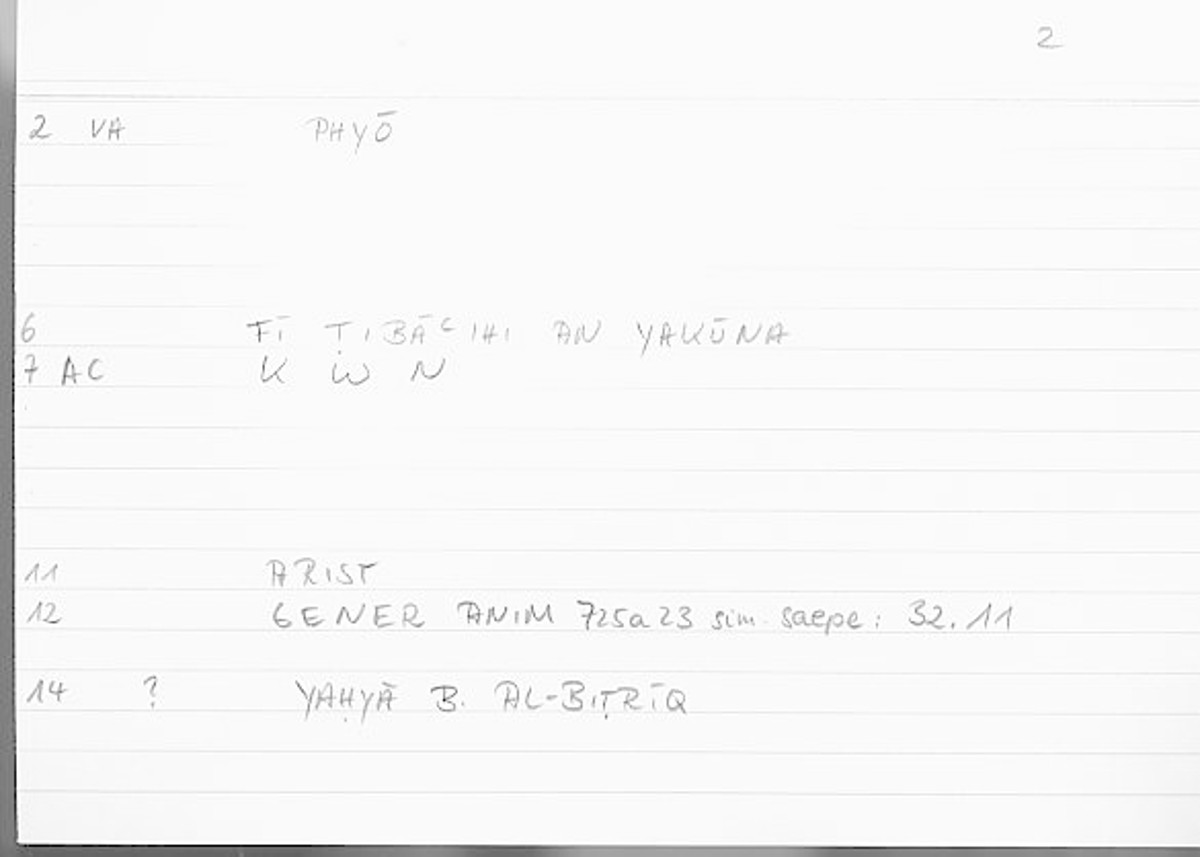 2
2 VA PHYŌ
6 FĪ ṬIBĀʿIHI AN YAKŪNA
7 AC K W N
11 ARIST
12 GENER ANIM 725a23 sim. saepe: 32.11
14 ? YAḤYĀ B. AL-BIṬRĪQ